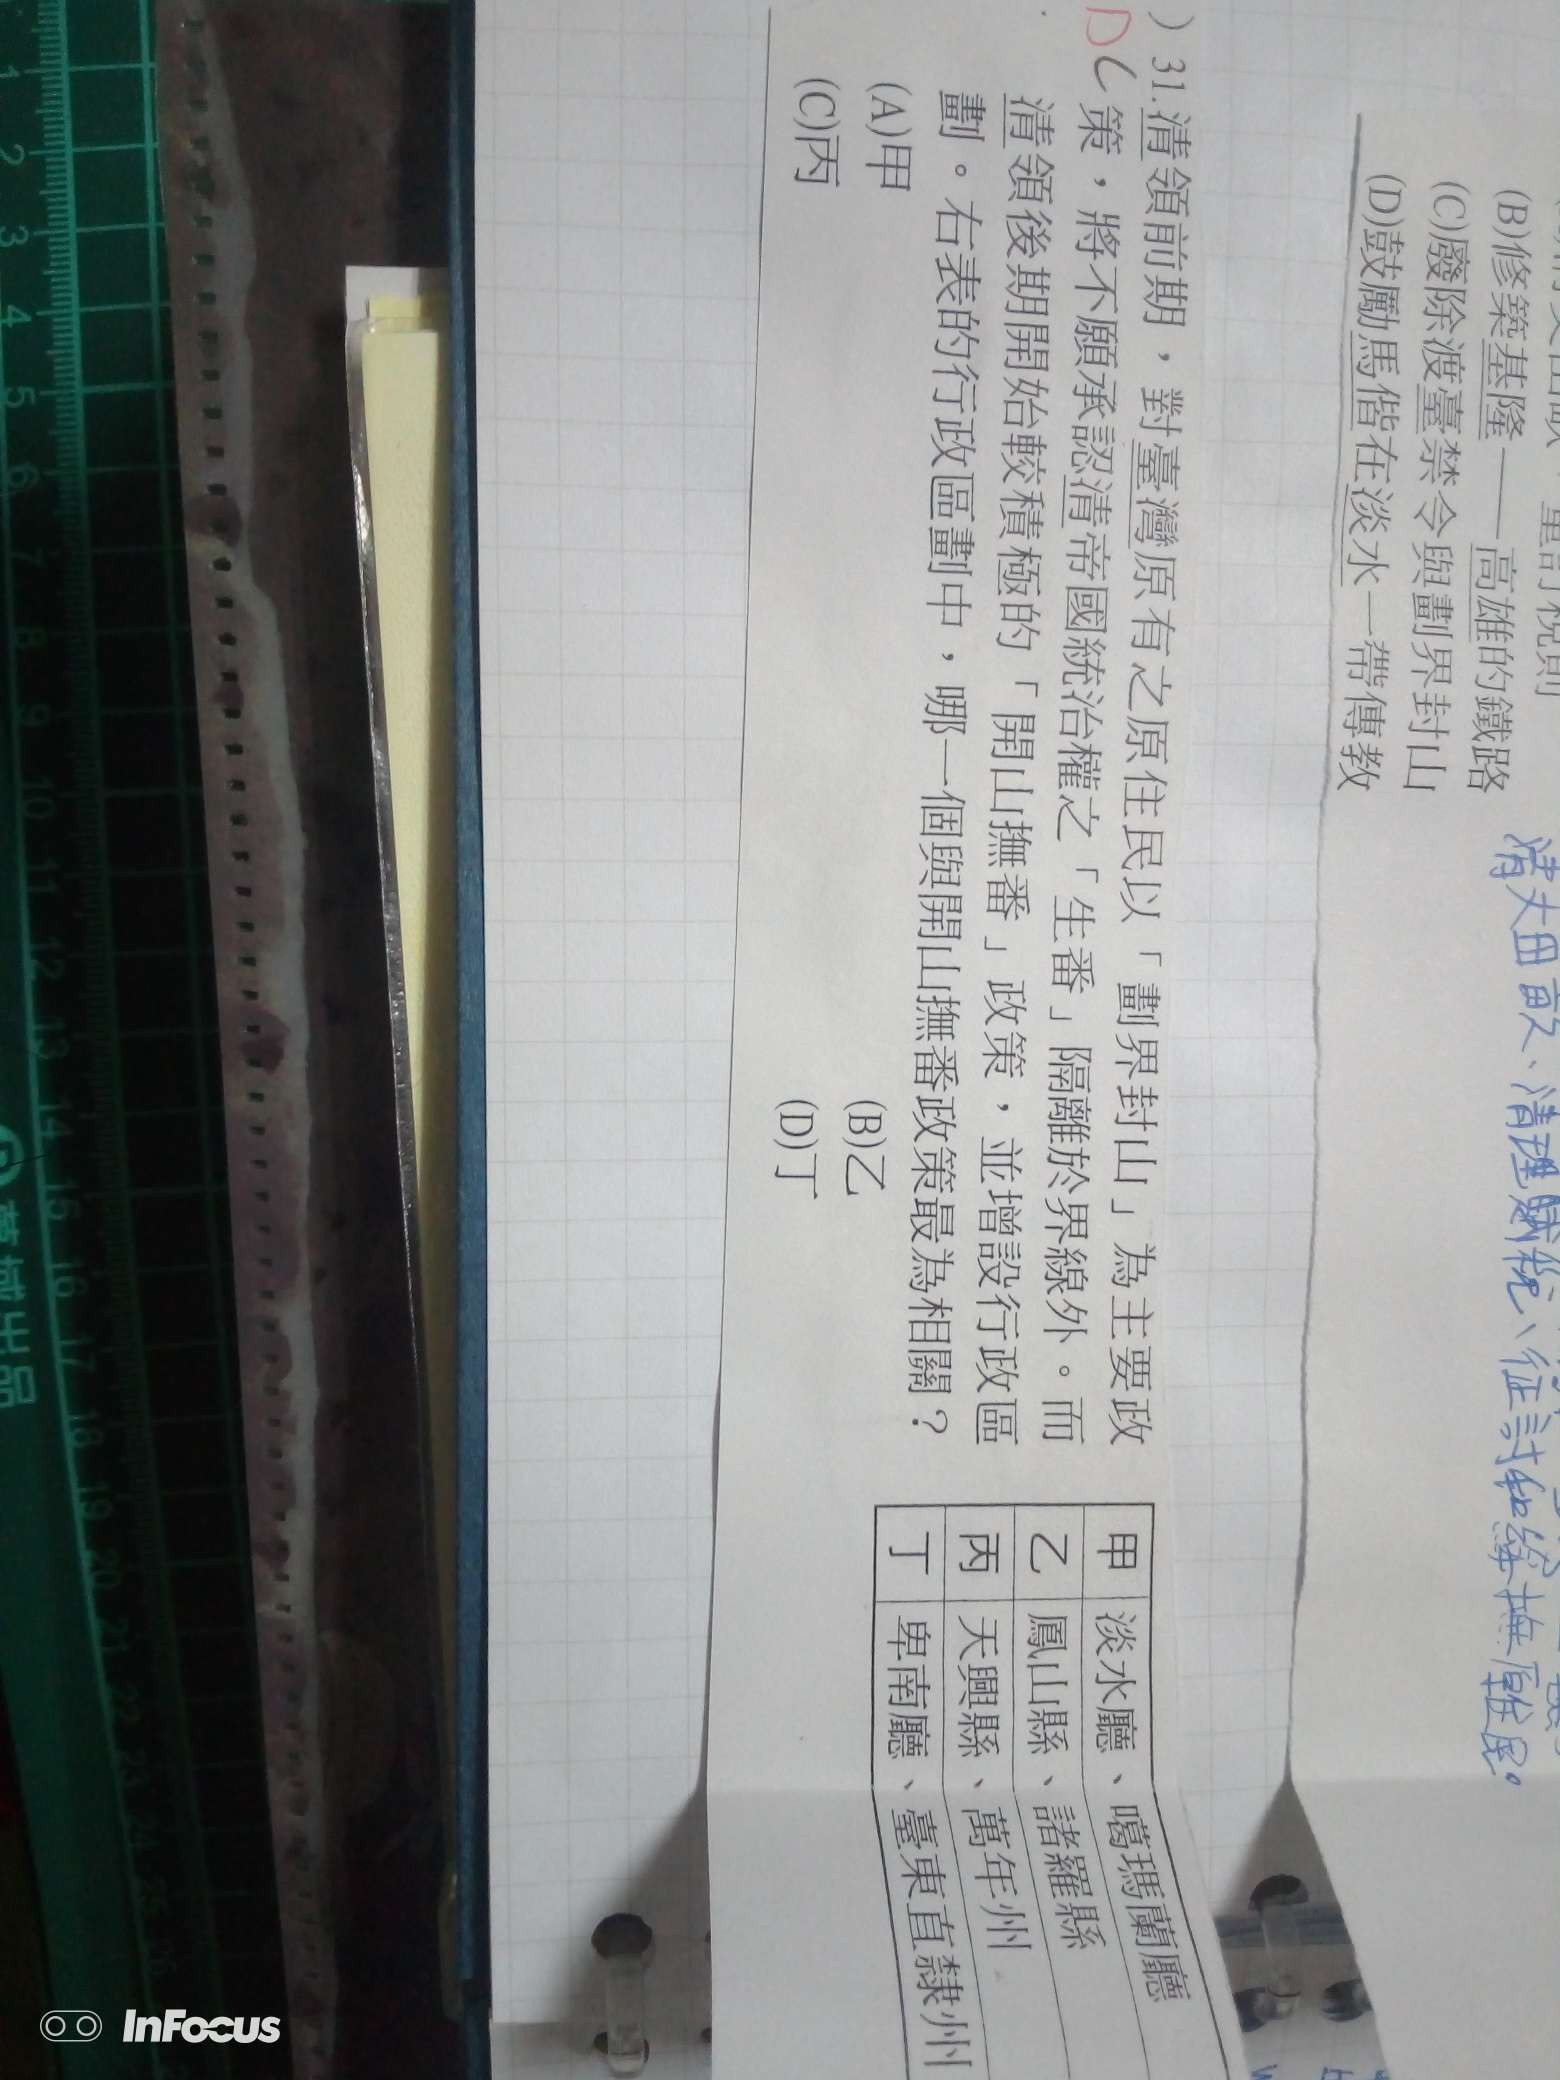 (B)修築基隆——高雄的鐵路
(C)廢除渡臺禁令與劃界封山
(D)鼓勵馬偕在淡水一帶傳教
清丈田畝、清理賦稅、征討和綏撫原住民。
)31.清領前期,對臺灣原有之原住民以「劃界封山」為主要政
D C 策,將不願承認清帝國統治權之「生番」隔離於界線外。而
清領後期開始較積極的「開山撫番」政策,並增設行政區
劃。右表的行政區劃中,哪一個與開山撫番政策最為相關?
(A)甲 (B)乙
(C)丙 (D)丁
甲 淡水廳、噶瑪蘭廳
乙 鳳山縣、諸羅縣
丙 天興縣、萬年州
丁 卑南廳、臺東直隸州
1 2 3 4 5 6 7 8 9 10 11 12 13 14 15 16 17 18 19 20 21 22 23 24 25
出品
InFocus